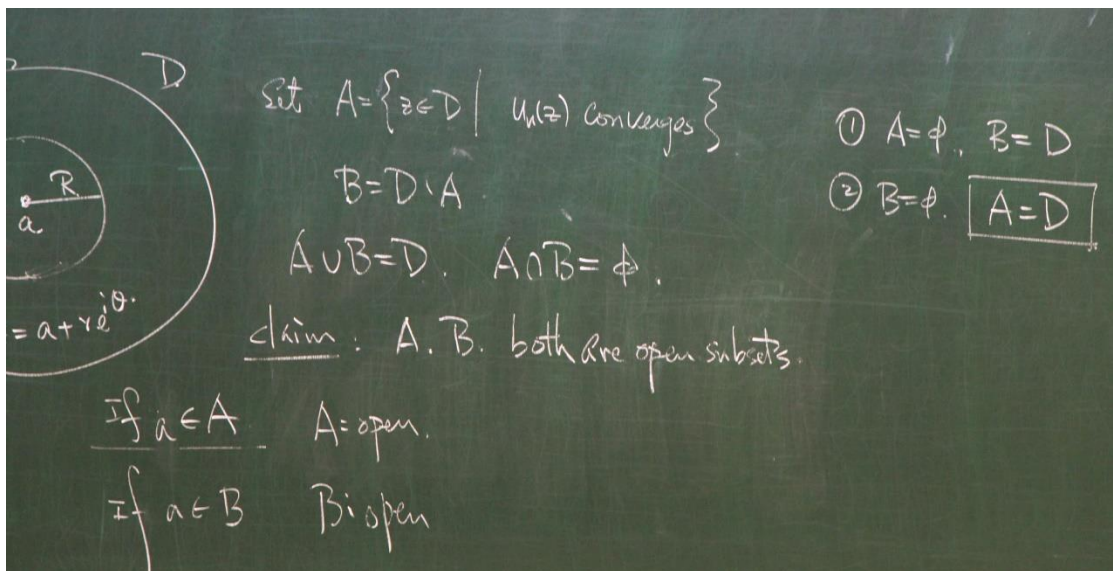 D
R
a
= a+re^{iθ}.
Set A={z∈D| u_n(z) converges}
B=D\A
A∪B=D. A∩B=ϕ.
claim: A. B. both are open subsets.
If a∈A A:open.
If a∈B B:open
① A=ϕ, B=D
② B=ϕ. A=D